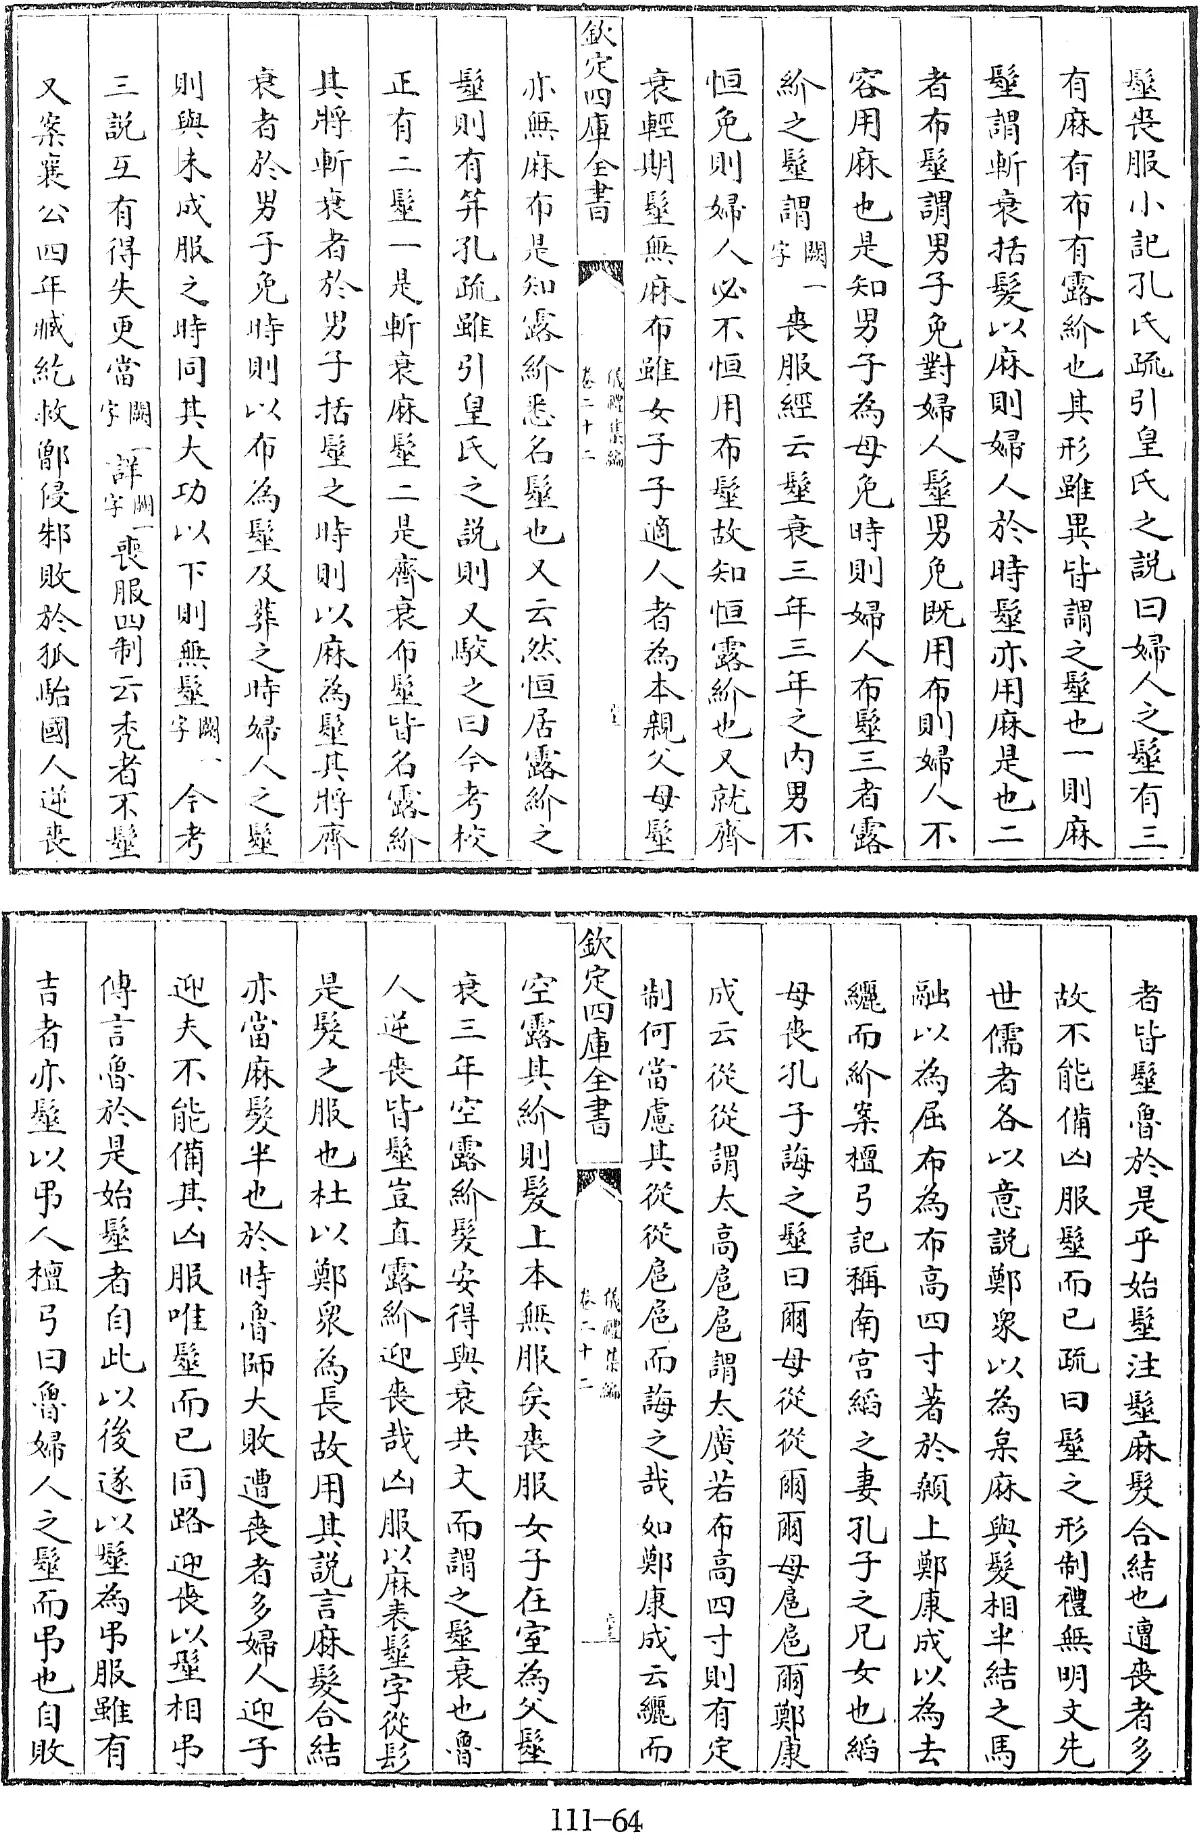 髽喪服小記孔氏疏引皇氏之説曰婦人之髽有三
有麻有布有露紒也其形雖異皆謂之髽也一則麻
髽謂斬衰括髮以麻則婦人於時髽亦用麻是也二
者布髽謂男子免對婦人髽男免既用布則婦人不
容用麻也是知男子為母免時則婦人布髽三者露
紒之髽謂闕一字喪服經云髽衰三年三年之内男不
恒免則婦人必不恒用布髽故知恒露紒也又就齊
衰輕期髽無麻布雖女子子適人者為本親父母髽
欽定四庫全書
儀禮集編
卷二十二
亦無麻布是知露紒悉名髽也又云然恒居露紒之
髽則有笄孔疏雖引皇氏之説則又駮之曰今考校
正有二髽一是斬衰麻髽二是齊衰布髽皆名露紒
其將斬衰者於男子括髮之時則以麻為髽其將齊
衰者於男子免時則以布為髽及葬之時婦人之髽
則與未成服之時同其大功以下則無髽闕一字今考
三説互有得失更當闕一字詳闕一字喪服四制云秃者不髽
又案襄公四年臧紇救鄫侵邾敗於狐駘國人逆喪
者皆髽魯於是乎始髽注髽麻髮合結也遭喪者多
故不能備凶服髽而已疏曰髽之形制禮無明文先
世儒者各以意説鄭衆以為枲麻與髮相半結之馬
融以為屈布為布高四寸著於顙上鄭康成以為去
纚而紒案檀弓記稱南宫縚之妻孔子之兄女也縚
母喪孔子誨之髽曰爾母從從爾爾母扈扈爾鄭康
成云從從謂太高扈扈謂太廣若布高四寸則有定
制何當慮其從從扈扈而誨之哉如鄭康成云纚而
欽定四庫全書
儀禮集編
卷二十二
空露其紒則髮上本無服矣喪服女子在室為父髽
衰三年空露紒髮安得與衰共文而謂之髽衰也魯
人逆喪皆髽豈直露紒迎喪哉凶服以麻表髽字從髟
是髮之服也杜以鄭衆為長故用其説言麻髮合結
亦當麻髮半也於時魯師大敗遭喪者多婦人迎子
迎夫不能備其凶服唯髽而已同路迎喪以髽相弔
傳言魯於是始髽者自此以後遂以髽為弔服雖有
吉者亦髽以弔人檀弓曰魯婦人之髽而弔也自敗
111-64